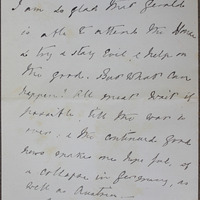 I am so glad that Gerald
is able to attend the House
& try & stay Evil, & help on
the good. But what can
happen? All must wait if
possible till the war is
over, & the continued good
news makes me hope for, of
a collapse in Germany, as
well as Austria